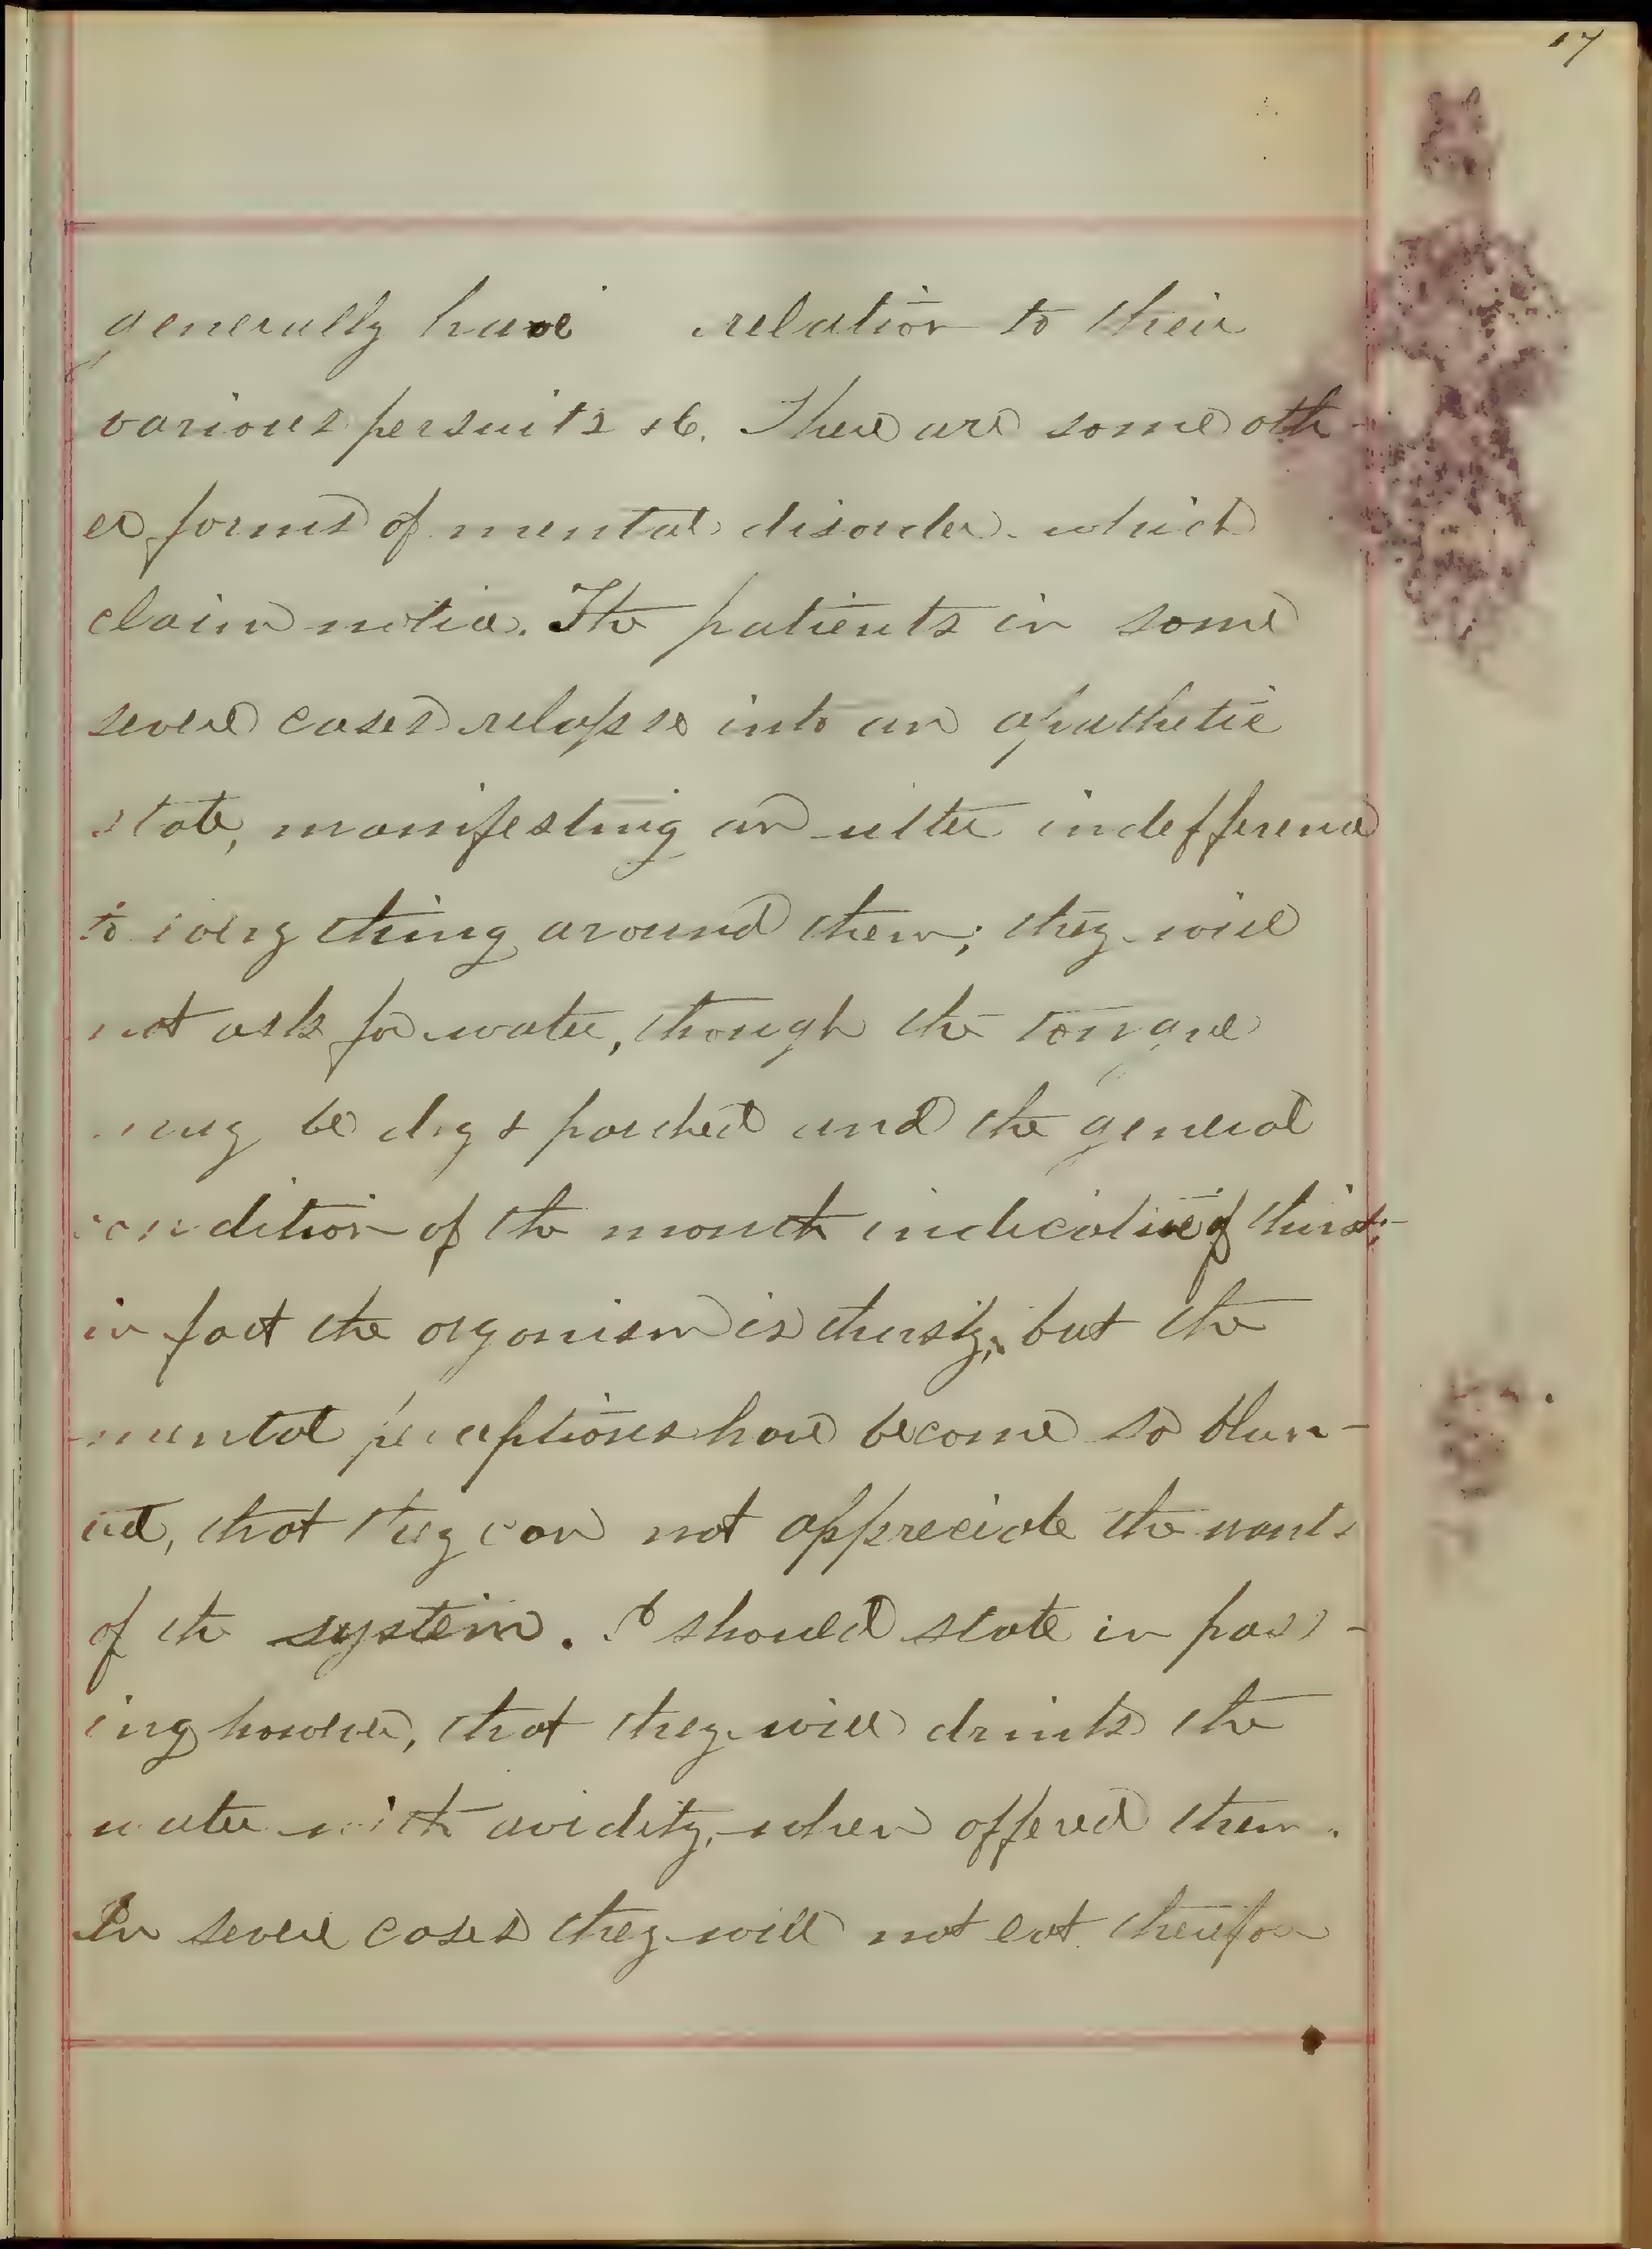 17
generally have relation to their
various persuits &c. There are some oth-
er forms of mental disorder which
claim notice. The patients in some
severe cases relapse into an apathetic
state, manifesting an utter indefference
to every thing around them; they will
not ask for water, though the tongue
may be dry & parched and the general
condition of the mouth indicative of thirst;-
in fact the organism is thirsty, but the
mental perceptions have become so blun-
ted, that they can not appreciate the wants
of the system. I should state in pass-
ing however, that they will drink the
water with avidity, when offered them.
In severe cases they will not eat therefore